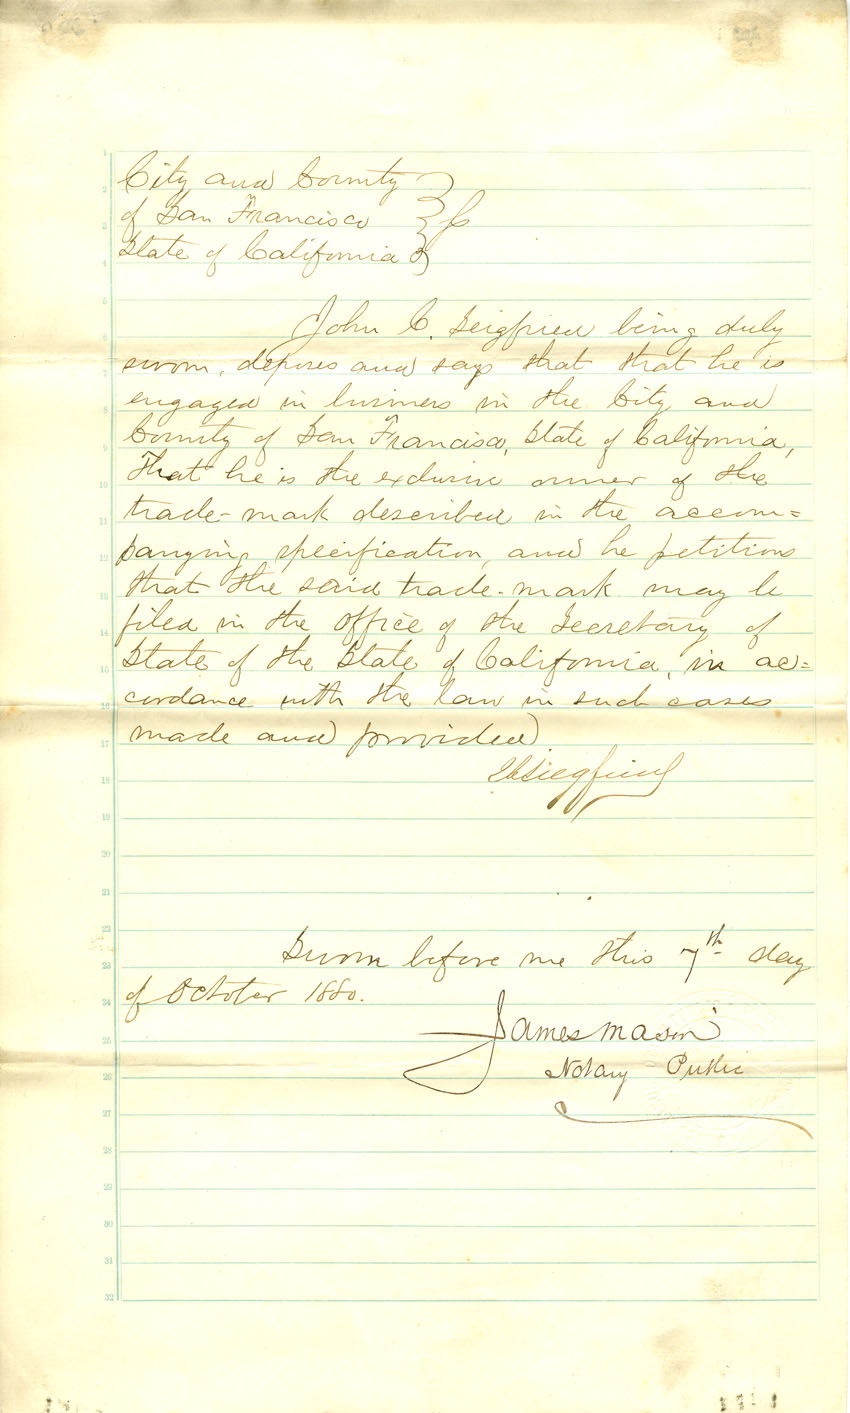 City and County
of San Francisco } ss
State of California
John C. Seigfried being duly
sworn, deposes and says that that he is
engaged in business in the City and
County of San Francisco, State of California,
That he is the exclusive owner of the
trade-mark described in the accom=
panying specification, and he petitions
that the said trade-mark may be
filed in the office of the Secretary of
State of the State of California, in ac=
cordance with the law in such cases
made and provided
Siegfried
Sworn before me this 7th day
of October 1880.
James Mason
Notary Public